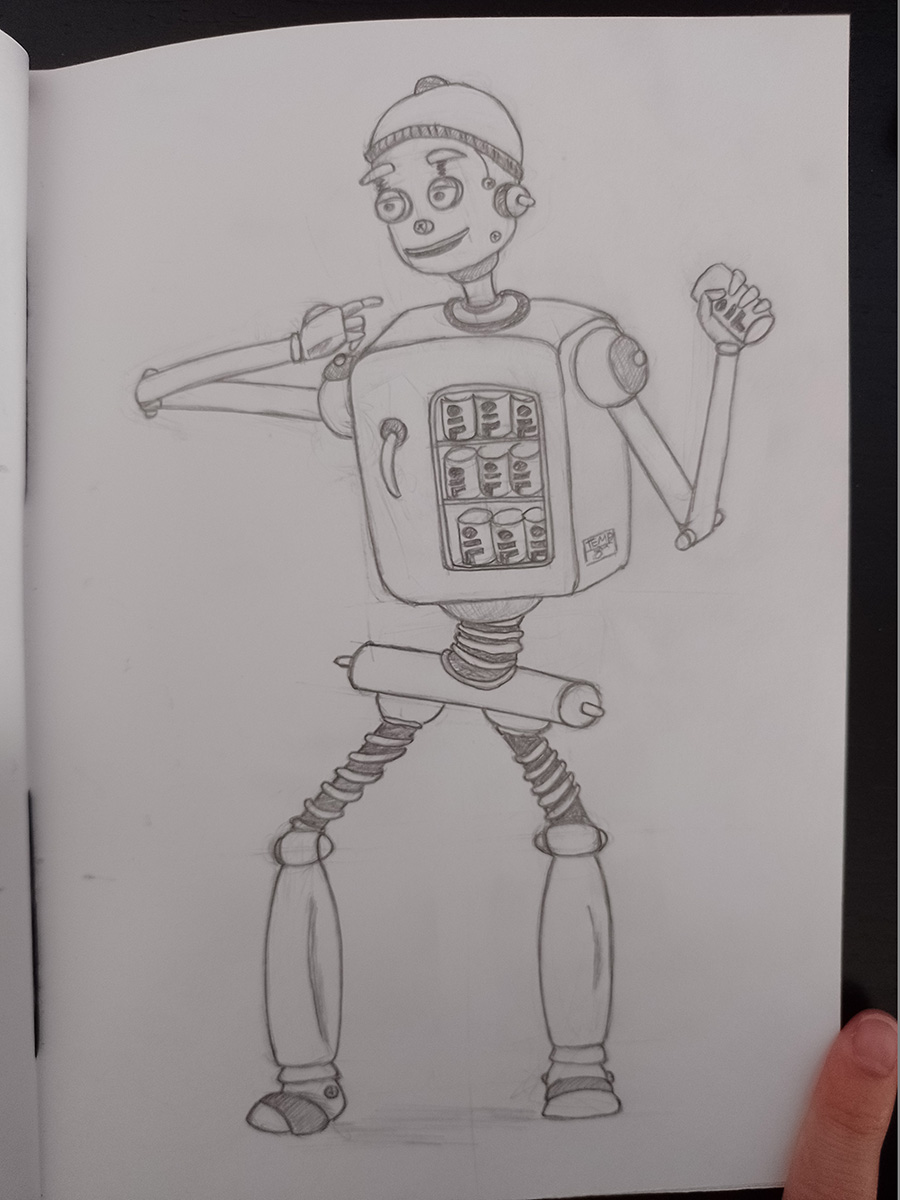 OIL
OIL OIL OIL
OIL OIL OIL
OIL OIL OIL
TEMP